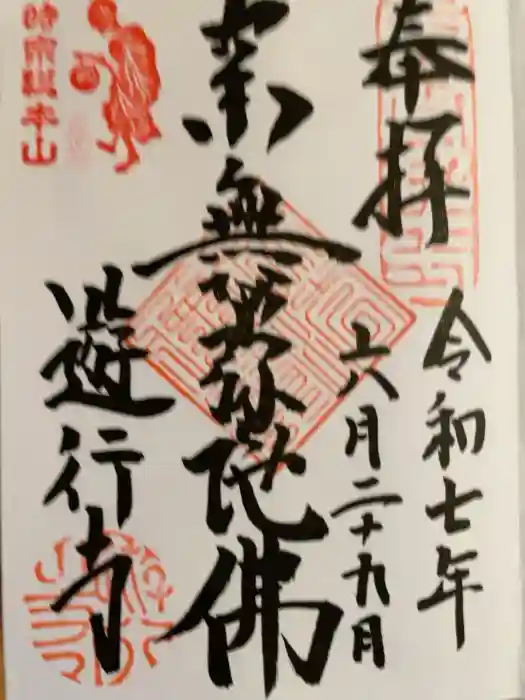 奉拝
令和七年
六月二十九日
南無阿弥陀佛
時宗総本山
遊行寺